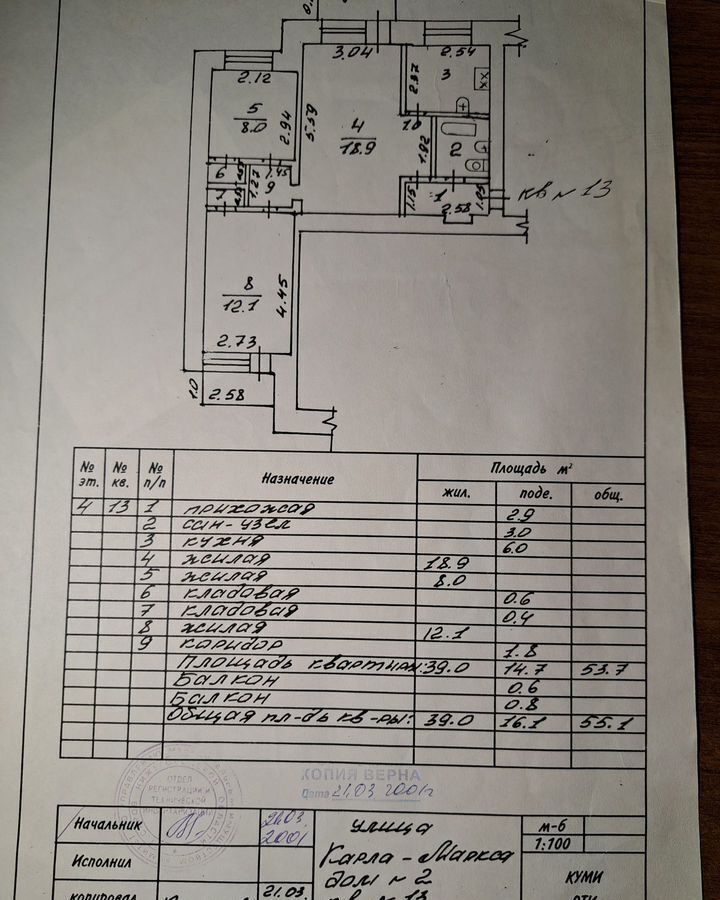 3.04
2.54
2.12
2.37
3
5
8.0
2.94
5.59
4
18.9
1.0
1.92
2
6
1.45
1.27
9
7
1.15
1
2.58
1.05
кв № 13
8
12.1
4.45
2.73
1.0
2.58
№ эт. № кв. № п/п Назначение Площадь м²
жил. подс. общ.
4 13 1 прихожая 2.9
2 сан-узел 3.0
3 кухня 6.0
4 жилая 18.9
5 жилая 8.0
6 кладовая 0.6
7 кладовая 0.4
8 жилая 12.1
9 коридор 1.8
Площадь квартиры: 39.0 14.7 53.7
Балкон 0.6
Балкон 0.8
Общая пл-дь кв-ры: 39.0 16.1 55.1
КОПИЯ ВЕРНА
Дата 21.03 2001г
ОТДЕЛ
РЕГИСТРАЦИИ И
ТЕХНИЧЕСКОЙ
ИНВЕНТАРИЗАЦИИ
Начальник 21.03 2001
Исполнил
копировал 21.03.
улица
Карла-Маркса
дом № 2
кв. № 13
м-б
1:100
КУМИ
РТИ